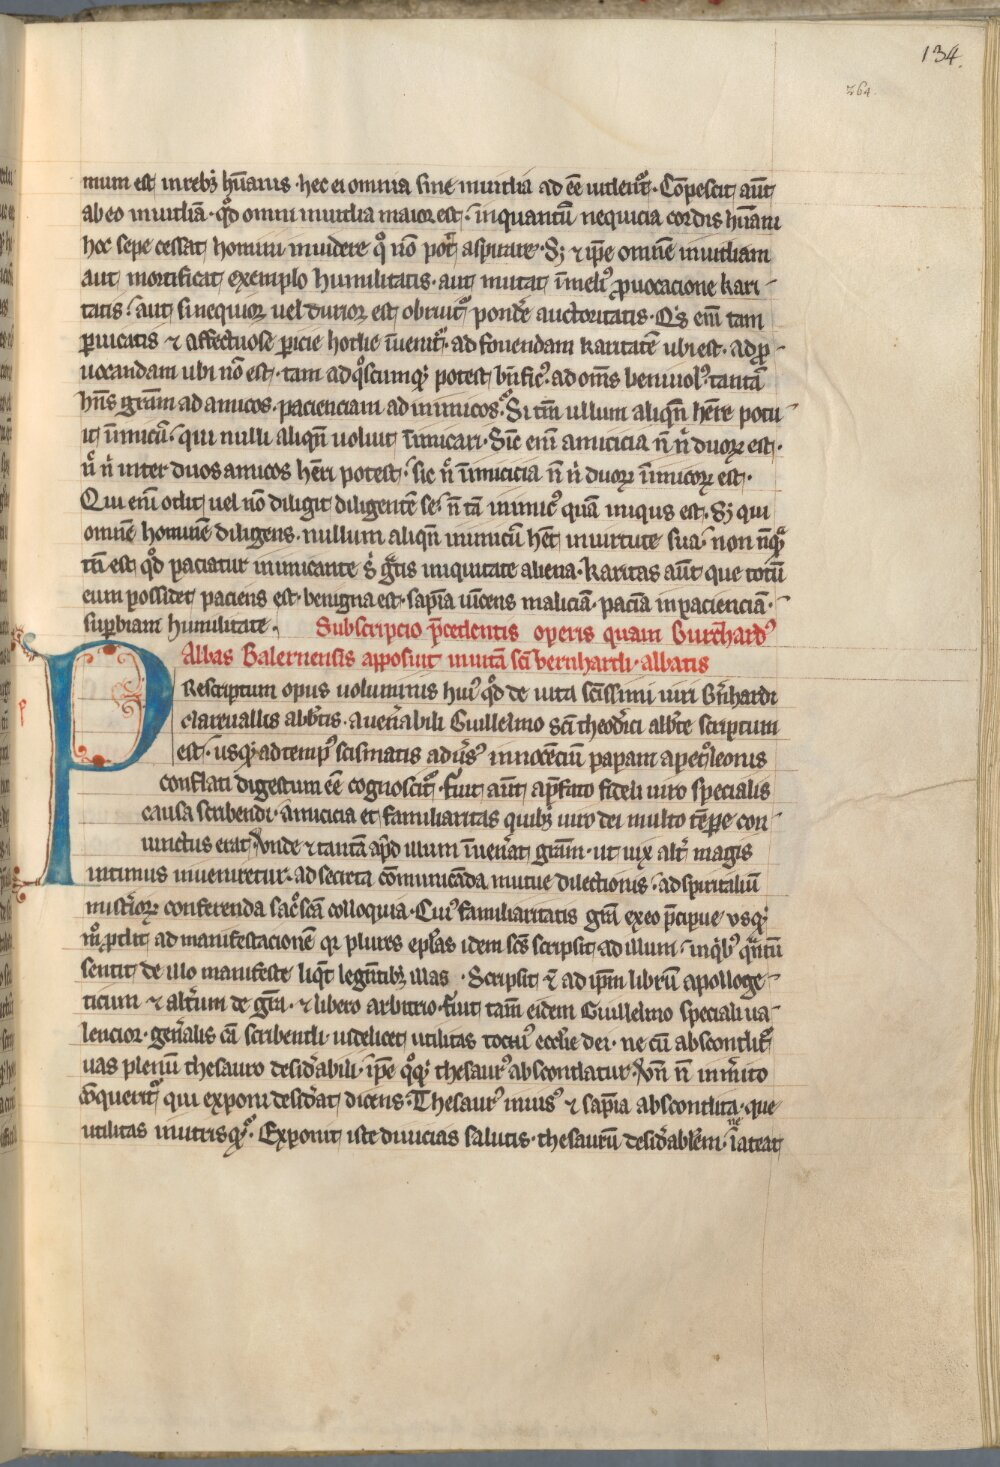 134.
264.
mum est in rebꝫ hūanis · hec ei omnia sine inuidia ad eē uident᷑ · Cōpescit aūt
ab eo inuidiā · qd̄ omni inuidia maior est · inquantū nequicia cordis hūani
hoc sepe cessat homini inuidere qͦ nō pot᷑ aspirare · Sꝫ ⁊ ip̄e omnē inuidiam
aut mortificat exemplo humilitatis · aut mutat ī meliꝰ ꝓuocacione kari
tatis · aut si nequior uel durior est obruit᷑ pondẽ auctoritatis · Qͥs enī tam
ꝑuicatis ⁊ affectuose ꝑicie hodie īuenit᷑ · ad fouendam karitatē ubi est · ad ꝓ
uocandam ubi nō est · tam ad qͦscumqꝫ potest bn̄ficꝰ · ad om̄s beniuolꝰ · tantā
hn̄s gr̄am ad amicos · pacienciam ad inimicos · Si tn̄ ullum aliqn̄ hēre potu
it īimicū · qui nulli aliqn̄ uoluit īimicari · Sic enī amicicia n̄ nͥ duoꝝ est ·
n̄ nͥ inter duos amicos hēri potest · sic n̄ īimicicia n̄ nͥ duoꝝ īimicoꝝ est ·
Qui enī odit uel nō diligit diligentē se · n̄ tā inimicꝰ quā iniqus est · Sꝫ qui
omnē hominē diligens · nullum aliqn̄ inimicū hēt in uirtute sua · non nū̄qͣ
tn̄ est qd̄ paciatur inimicante sͥ gͣtis iniquitate aliena · Karitas aūt que totū
eum possidet paciens est · benigna est · sap̄ia uīcens maliciā · pacīa inpacienciā ·
suꝑbiam humilitate · Subscripcio p̄cedentis operis quam Burchardꝰ
Abbas Balernensis apposuit in uitā sc̄i bernhardi · abbatis
PRescriptum opus uoluminis huiꝰ qd̄ de uita sc̄issimi uiri Br̄nhardi
clareuallis abb̄tis · a uen̄abili Guillelmo sc̄i theodr̄ici abb̄te scriptum
est · usqꝫ ad tempꝰ scismatis adūsꝰ innocēciū papam a petͦ leonis
conflati digestum eē cognoscit᷑ · Fuit aūt ap̄fato fideli uiro specialis
causa scribendi · amicicia et familiaritas quibꝫ uiro dei multo tēpe con
iunctus erat · Vnde ⁊ tantā apd̄ illum īuen̄at gr̄am · ut uix alt᷑ magis
intimus inueniretur · ad secreta cōmunicāda mutue dilectionis · ad spiritaliū
mist̄ioꝝ conferenda sac̄sc̄a colloquia · Cuiꝰ familiaritatis gr̄a ex eo p̄cipue usqꝫ
mͦ ꝓdit ad manifestacionē qr plures ep̄las idem sc̄s scripsit ad illum · in qͥbꝰ qͣntū
sentit de illo manifeste liqͣt legn̄tibꝫ illas · Scripsit ⁊̄ ad ip̄m librū apologe
ticum ⁊ alt̄um de gr̄a · ⁊ libero arbitrio · Fuit tam̄ eidem Guillelmo speciali ua
lencior · gen̄alis cā scribendi · uidelicet utilitas tociꝰ ecc̄lie dei · ne cū abscondit᷑
uas plenū thesauro desid̄abili · ip̄e qͦqꝫ thesaurꝰ abscondatur · Vn̄ n̄ in mͥito
cōquerit᷑ qui exponi desid̄at dicens · Thesaurꝰ inuisꝰ ⁊ sap̄ia abscondita · que
utilitas in utrisqꝫ · Exponit iste diuicias salutis · thesaurū desid̄abilem · ne lateat